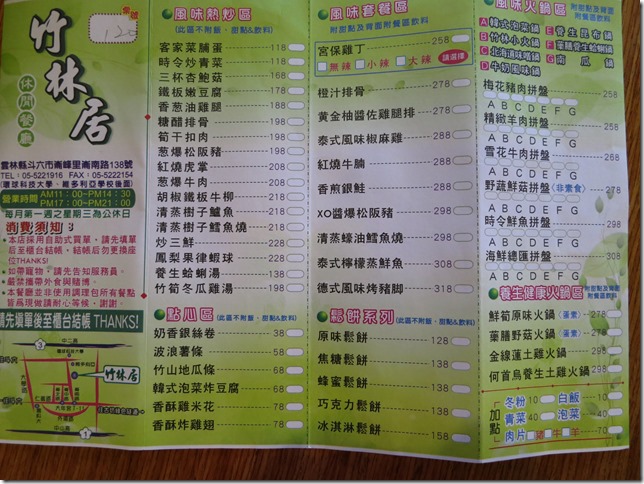 桌號
120
竹林居
休閒餐廳
雲林縣斗六市嘉東里嘉南路138號
TEL：05-5221916 FAX：05-5222154
(環球科技大學、維多利亞學校後面)
營業時間
AM11：00~PM14：30
PM17：00~PM21：00
每月第一週之星期三為公休日
消費須知
本店採用自助式買單，請先填單
后至櫃台結帳，結帳后勿更換座
位THANKS!
如帶寵物，請先告知服務員。
嚴禁攜帶外食與賭博。
本餐廳並非使用調理包所有餐點
皆為現做請耐心等候，謝謝。
請先填單後至櫃台結帳 THANKS!
竹林居
風味熱炒區
(此區不附飯、甜點&飲料)
客家菜脯蛋 118
時令炒青菜 118
三杯杏鮑菇 168
鐵板嫩豆腐 168
香蔥油雞腿 188
糖醋排骨 198
筍干扣肉 198
蔥爆松阪豬 198
紅燒虎掌 208
蔥爆牛肉 208
胡椒鐵板牛柳 218
清蒸樹子鱸魚 218
清蒸樹子鱈魚燒 218
炒三鮮 238
鳳梨果律蝦球 238
養生蛤蜊湯 198
竹筍冬瓜雞湯 198
點心區
(此區不附飯、甜點&飲料)
奶香銀絲卷 38
波浪薯條 58
竹山地瓜條 68
韓式泡菜炸豆腐 68
香酥雞米花 78
香酥炸雞翅 78
風味套餐區
附甜點及背面附餐區飲料
宮保雞丁 258
無辣 小辣 大辣 請選擇
橙汁排骨 278
黃金柚醬佐雞腿排 278
泰式風味椒麻雞 278
紅燒牛腩 288
香煎銀鮭 288
XO醬爆松阪豬 298
清蒸蠔油鱈魚燒 298
泰式檸檬蒸鮮魚 308
德式風味烤豬腳 318
鬆餅系列
(此區不附飯、甜點&飲料)
原味鬆餅 138
焦糖鬆餅 138
蜂蜜鬆餅 138
巧克力鬆餅 138
冰淇淋鬆餅 158
風味火鍋區
附甜點及背面附餐區飲料
A韓式泡菜鍋 E養生昆布鍋
B竹林小火鍋 F藥膳養生蛤蜊鍋
C北海道味噌鍋 G南瓜鍋
D牛奶風味鍋
梅花豬肉拼盤 258
A B C D E F G
精緻羊肉拼盤 258
A B C D E F G
雪花牛肉拼盤 268
A B C D E F G
野蔬鮮菇拼盤(非素食) 278
A B C D E F G
時令鮮魚拼盤 298
A B C D E F G
海鮮總匯拼盤 308
A B C D E F G
養生健康火鍋區
附甜點及背面附餐區飲料
鮮筍原味火鍋(蛋素) 278
藥膳野菇火鍋(蛋素) 298
金線蓮土雞火鍋 298
何首烏養生土雞火鍋 298
加點
冬粉 10 白飯 10
青菜 40 泡菜 40
肉片 豬 牛 羊 70